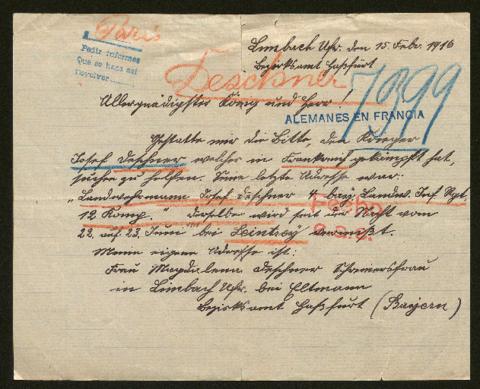 Paris
Pedir informes
Que se haga así
Limbach Ufr. den 15. Febr. 1916
Bezirksamt Haßfurt
Deschner
7399
Allergnädigster König und Herr!
ALEMANES EN FRANCIA
Gestatte mir die Bitte, den Krieger
Josef Deschner welcher in Frankreich gekämpft hat,
suchen zu helfen. Seine letzte Adresse war:
"Landwehrmann Josef Deschner 4. bay. Landw. Inf. Rgt.
12. Komp." derselbe wird seit der Nacht vom
22. auf 23. Juni bei Leintrey vermißt.
Meine eigene Adresse ist:
Frau Magdalena Deschner Schreinersfrau
in Limbach Ufr. bei Eltmann
Bezirksamt Haßfurt (Bayern)